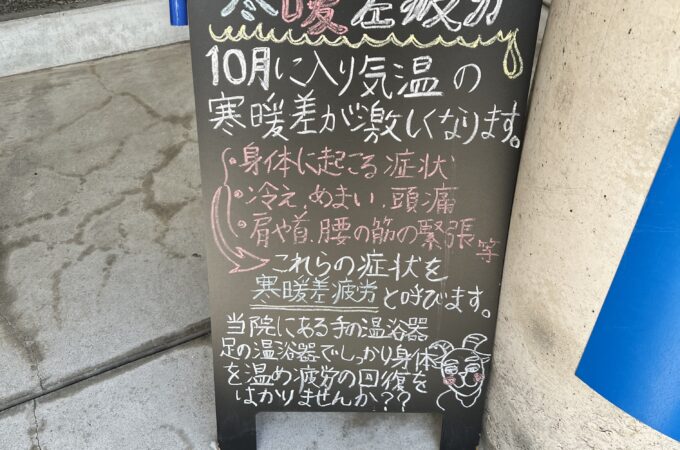 寒暖差疲労
10月に入り気温の
寒暖差が激しくなります。
・身体に起こる症状
・冷え、めまい、頭痛
・肩や首、腰の筋の緊張等
これらの症状を
寒暖差疲労と呼びます。
当院にある手の温浴器
足の温浴器でしっかり身体
を温め疲労の回復を
はかりませんか??